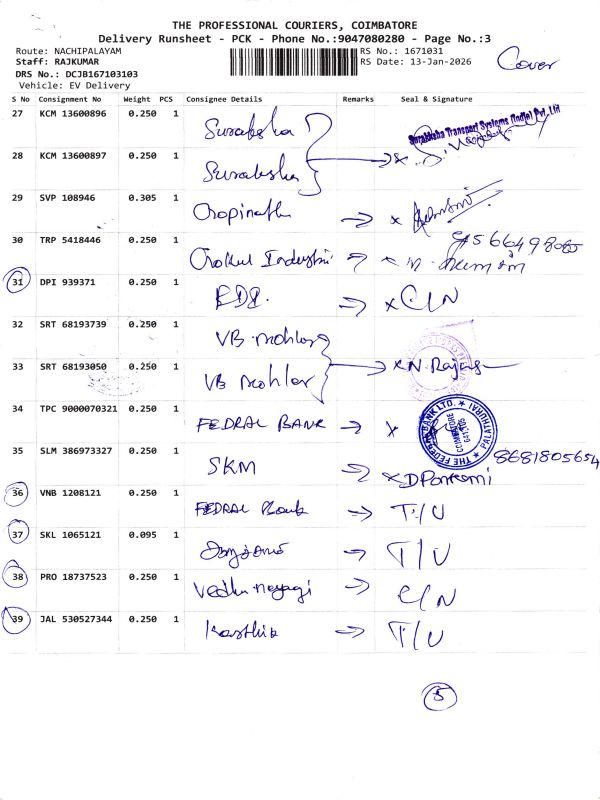 THE PROFESSIONAL COURIERS, COIMBATORE
Delivery Runsheet - PCK - Phone No.:9047080280 - Page No.:3
Route: NACHIPALAYAM RS No.: 1671031
Staff: RAJKUMAR RS Date: 13-Jan-2026 Cover
DRS No.: DCJB167103103
Vehicle: EV Delivery
S No Consignment No Weight PCS Consignee Details Remarks Seal & Signature
27 KCM 13600896 0.250 1 Suraksha Surakksha Transport Systems (India) Pvt. Ltd
28 KCM 13600897 0.250 1 Suraksha x
29 SVP 108946 0.305 1 Gopinath x
30 TRP 5418446 0.250 1 Gokul x
31 DPI 939371 0.250 1 x C/N
32 SRT 68193739 0.250 1 VB
33 SRT 68193050 0.250 1 VB x N. Rajan
34 TPC 9000070321 0.250 1 FEDRAL BANK x THE FEDERAL BANK LTD. COIMBATORE
35 SLM 386973327 0.250 1 SKM x 8681805654
36 VNB 1208121 0.250 1 FEDRAL Bank T/U
37 SKL 1065121 0.095 1 T/U
38 PRO 18737523 0.250 1 C/N
39 JAL 530527344 0.250 1 Karthik T/U
5